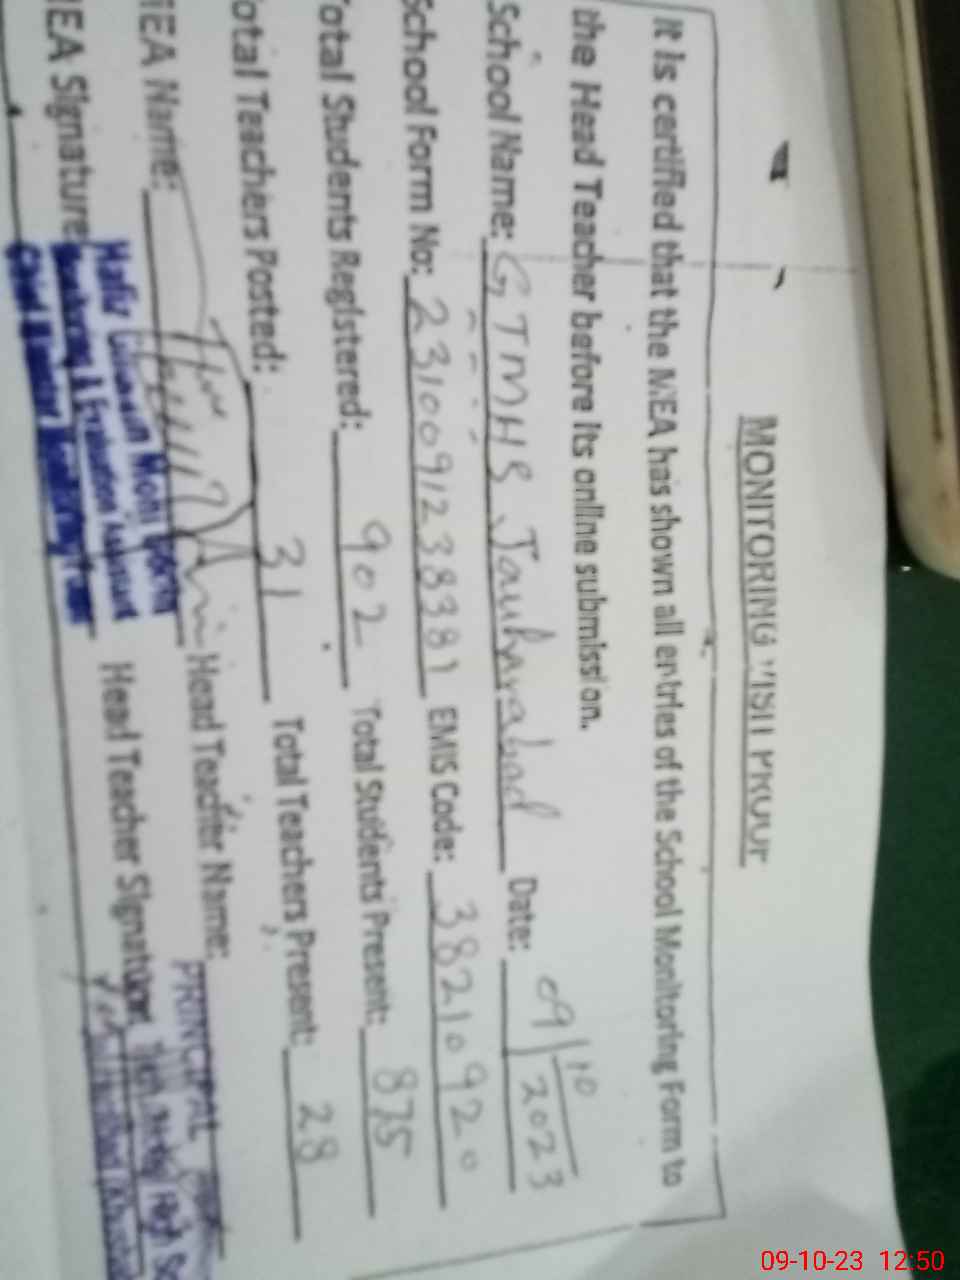 MONITORING VISIT PROOF
It is certified that the MEA has shown all entries of the School Monitoring Form to
the Head Teacher before its online submission.
School Name: GTMHS Jauharabad Date: 09/10/2023
School Form No: 2310091238381 EMIS Code: 38210920
Total Students Registered: 902 Total Students Present: 875
Total Teachers Posted: 31 Total Teachers Present: 28
MEA Name: Head Teacher Name:
PRINCIPAL
MEA Signature Head Teacher Signature
Hafiz
Monitoring & Evaluation Assistant
Chief Minister
High
09-10-23 12:50